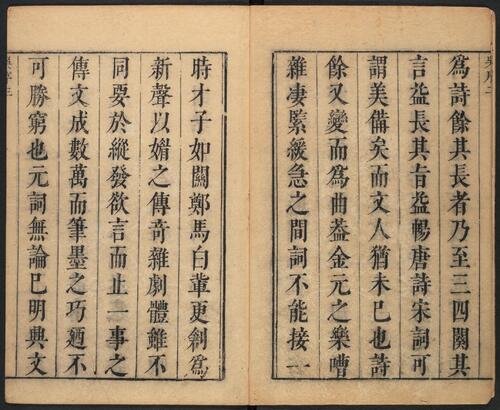 為詩餘其長者乃至三四闋其
言益長其旨益暢唐詩宋詞可
謂美備矣而文人猶未已也詩
餘又變而為曲葢金元之樂嘈
雜凄緊緩急之間詞不能接一
時才子如關鄭馬白輩更剏為
新聲以媚之傳奇雜劇體雖不
同要於縱發欲言而止一事之
傳文成數萬而筆墨之巧廼不
可勝窮也元詞無論已明興文